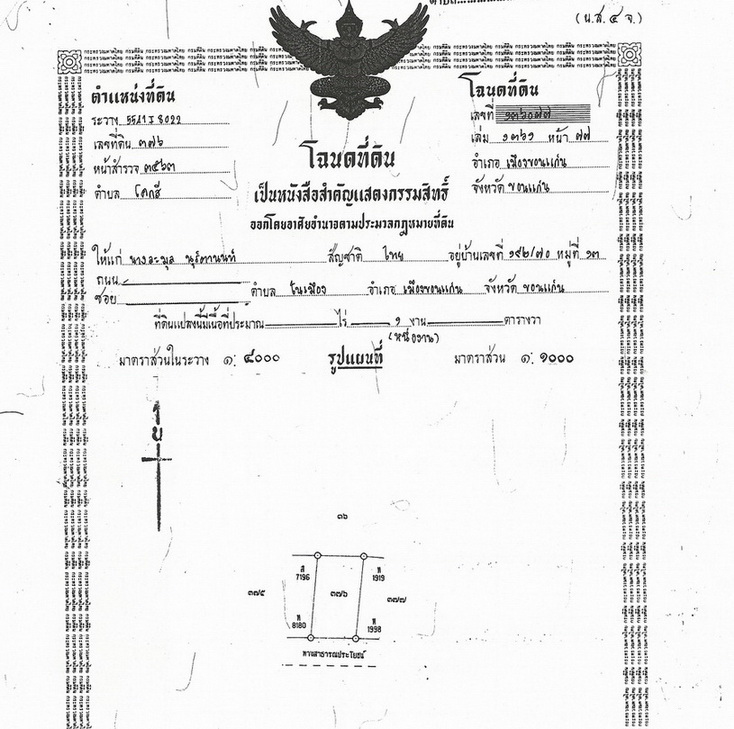 (น.ส.๔ จ.)
ตำแหน่งที่ดิน
ระวาง 5541 I 8022
เลขที่ดิน ๓๗๖
หน้าสำรวจ ๓๕๖๓
ตำบล โคกสี
โฉนดที่ดิน
เลขที่ ๑๓๖๐๗๗
เล่ม ๑๓๖๑ หน้า ๗๗
อำเภอ เมืองขอนแก่น
จังหวัด ขอนแก่น
โฉนดที่ดิน
เป็นหนังสือสำคัญแสดงกรรมสิทธิ์
ออกโดยอาศัยอำนาจตามประมวลกฎหมายที่ดิน
ให้แก่ นางละมุล สัญชาติ ไทย อยู่บ้านเลขที่ ๑๙๒/๗๐ หมู่ที่ ๑๓
ถนน
ซอย ตำบล ในเมือง อำเภอ เมืองขอนแก่น จังหวัด ขอนแก่น
ที่ดินแปลงนี้มีเนื้อที่ประมาณ ไร่ ๑ งาน ตารางวา
(หนึ่งงาน)
มาตราส่วนในระวาง ๑: ๔๐๐๐ รูปแผนที่ มาตราส่วน ๑: ๑๐๐๐
๓๖
7196 1919
๓๗๕ ๓๗๖ ๓๗๗
8180 1998
ทางสาธารณประโยชน์